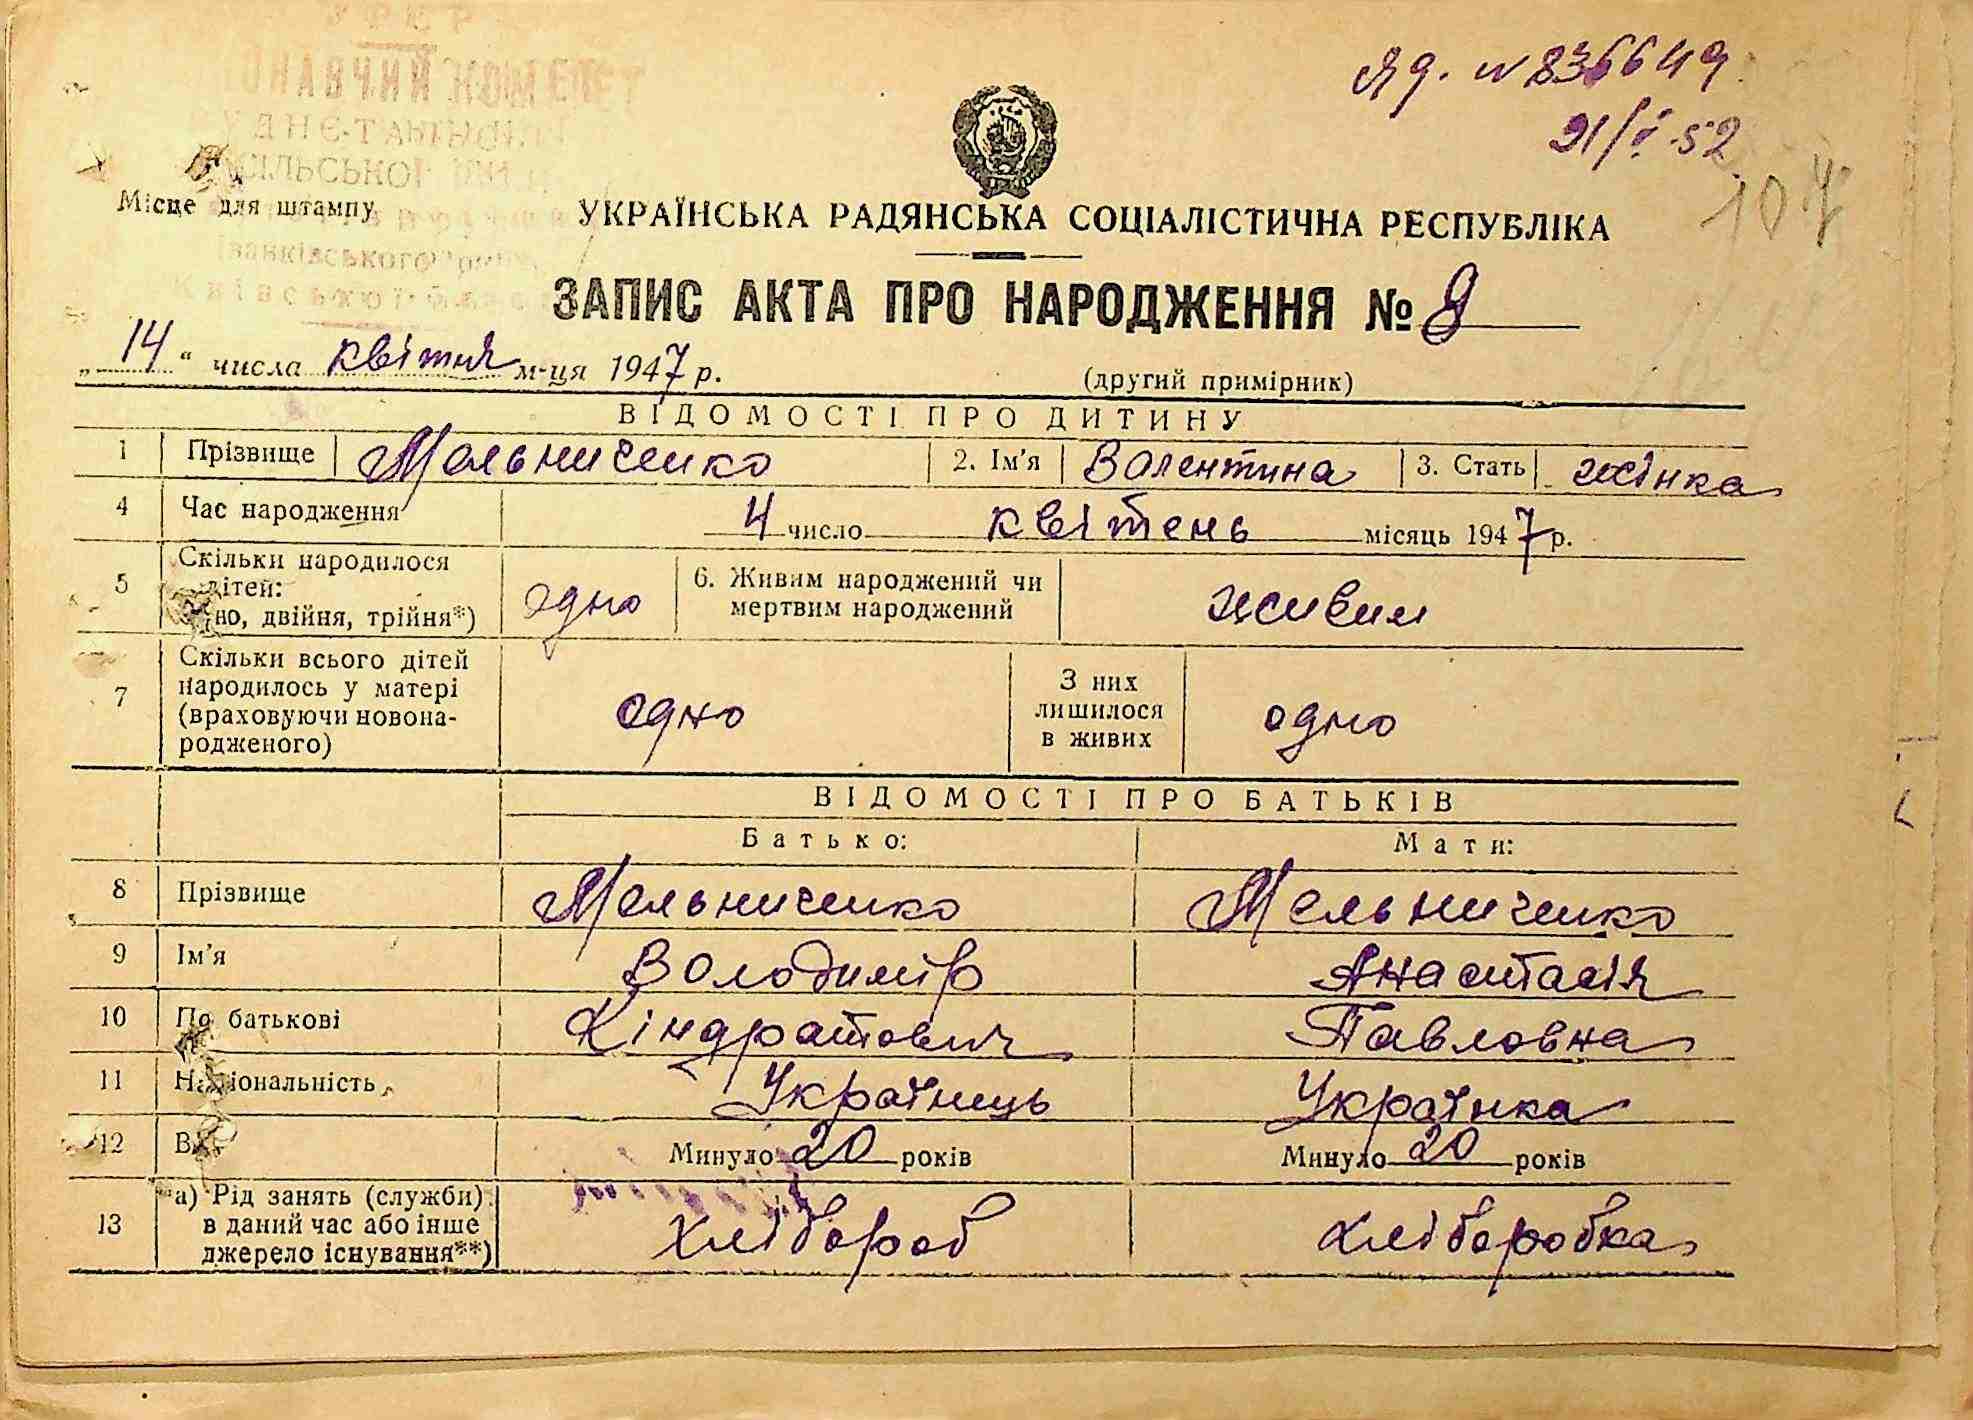 УРСР
КОМІТЕТ
СІЛЬСЬКОЇ
Іванківського
Київської
ЯД. N 836649
21/I-52
107
Місце для штампу
УКРАЇНСЬКА РАДЯНСЬКА СОЦІАЛІСТИЧНА РЕСПУБЛІКА
ЗАПИС АКТА ПРО НАРОДЖЕННЯ № 9
„14“ числа квітня м-ця 1947 р.
(другий примірник)
ВІДОМОСТІ ПРО ДИТИНУ
1 Прізвище Мельниченко 2. Ім'я Волентина 3. Стать жінка
4 Час народження 4 число квітень місяць 1947 р.
5 Скільки народилося
дітей:
но, двійня, трійня*) одно 6. Живим народжений чи
мертвим народжений живим
7 Скільки всього дітей
народилось у матері
(враховуючи новона-
родженого) одно З них
лишилося
в живих одно
ВІДОМОСТІ ПРО БАТЬКІВ
Батько: Мати:
8 Прізвище Мельниченко Мельниченко
9 Ім'я Володимір Анастасія
10 По батькові Кіндратович Павловна
11 Національність Українець Українка
12 Вік Минуло 20 років Минуло 20 років
13 а) Рід занять (служби)
в даний час або інше
джерело існування**) хлібороб хліборобка